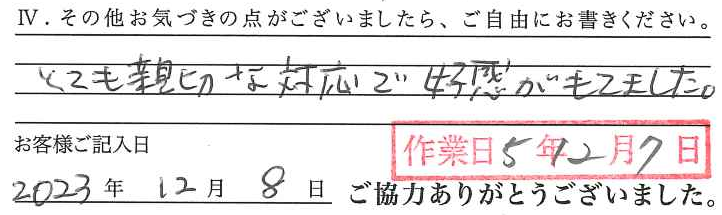 Ⅳ．その他お気づきの点がございましたら、ご自由にお書きください。
とても親切な対応で好感がもてました。
お客様ご記入日
作業日5年12月7日
2023年12月8日 ご協力ありがとうございました。